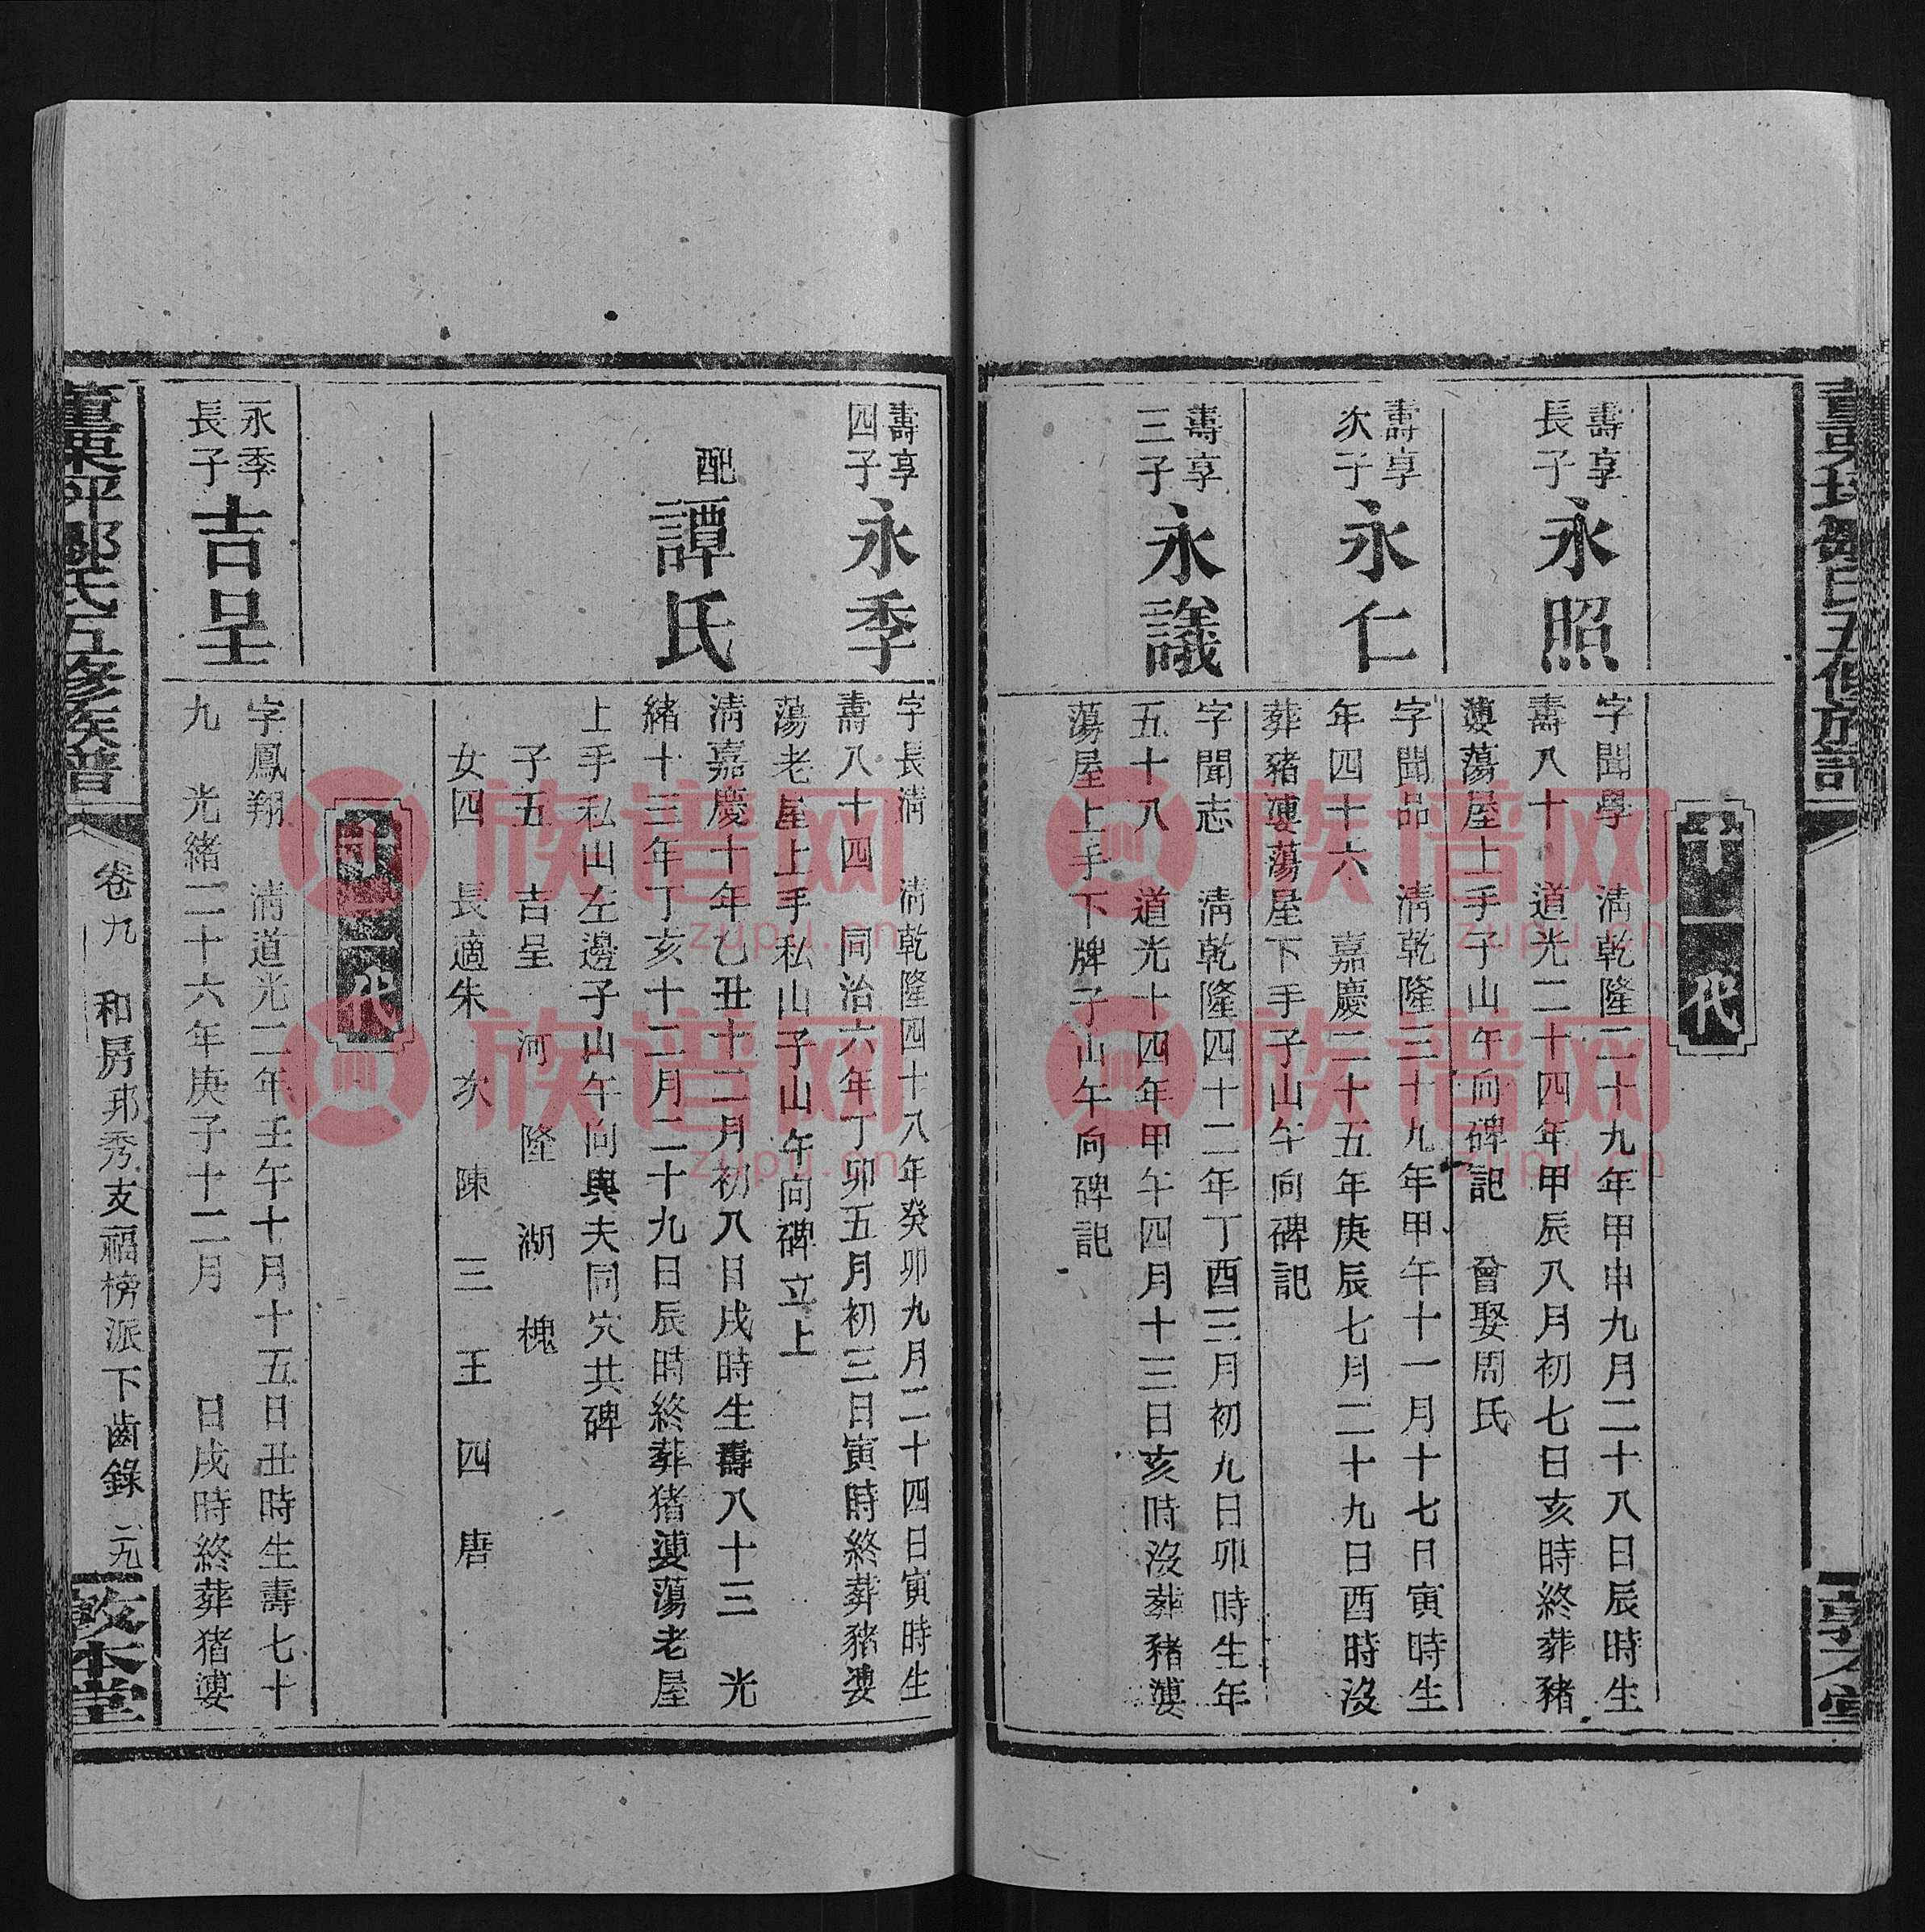 十一代
壽享
長子
永照
字聞學 淸乾隆二十九年甲申九月二十八日辰時生
壽八十 道光二十四年甲辰八月初七日亥時終葬豬
婆蕩屋上手子山午向碑記 曾娶周氏
壽享
次子
永仁
字聞品 淸乾隆三十九年甲午十一月十七日寅時生
年四十六 嘉慶二十五年庚辰七月二十九日酉時沒
葬豬婆蕩屋下手子山午向碑記
壽享
三子
永議
字聞志 淸乾隆四十二年丁酉三月初九日卯時生年
五十八 道光十四年甲午四月十三日亥時沒葬豬婆
蕩屋上手下牌子山午向碑記
壽享
四子
永季
字長淸 淸乾隆四十八年癸卯九月二十四日寅時生
壽八十四 同治六年丁卯五月初三日寅時終葬豬婆
蕩老屋上手私山子山午向碑立上
配
譚氏
淸嘉慶十年乙丑十二月初八日戌時生壽八十三 光
緒十三年丁亥十二月二十九日辰時終葬猪婆蕩老屋
上手私山左邊子山午向與夫同穴共碑
子五 吉呈 河 隆 湖 槐
女四 長適朱 次 陳 三 王 四 唐
十二代
永季
長子
吉呈
字鳳翔 淸道光二年壬午十月十五日丑時生壽七十
九 光緒二十六年庚子十二月 日戌時終葬猪婆
鄒氏五修族譜
卷九 和房邦秀支福榜派下齒錄 二九
敦本堂
zupu.cn
族谱网
zupu.cn
族谱网
zupu.cn
族谱网
zupu.cn
族谱网